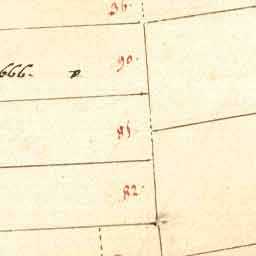 36.
666. P
90.
81.
82.